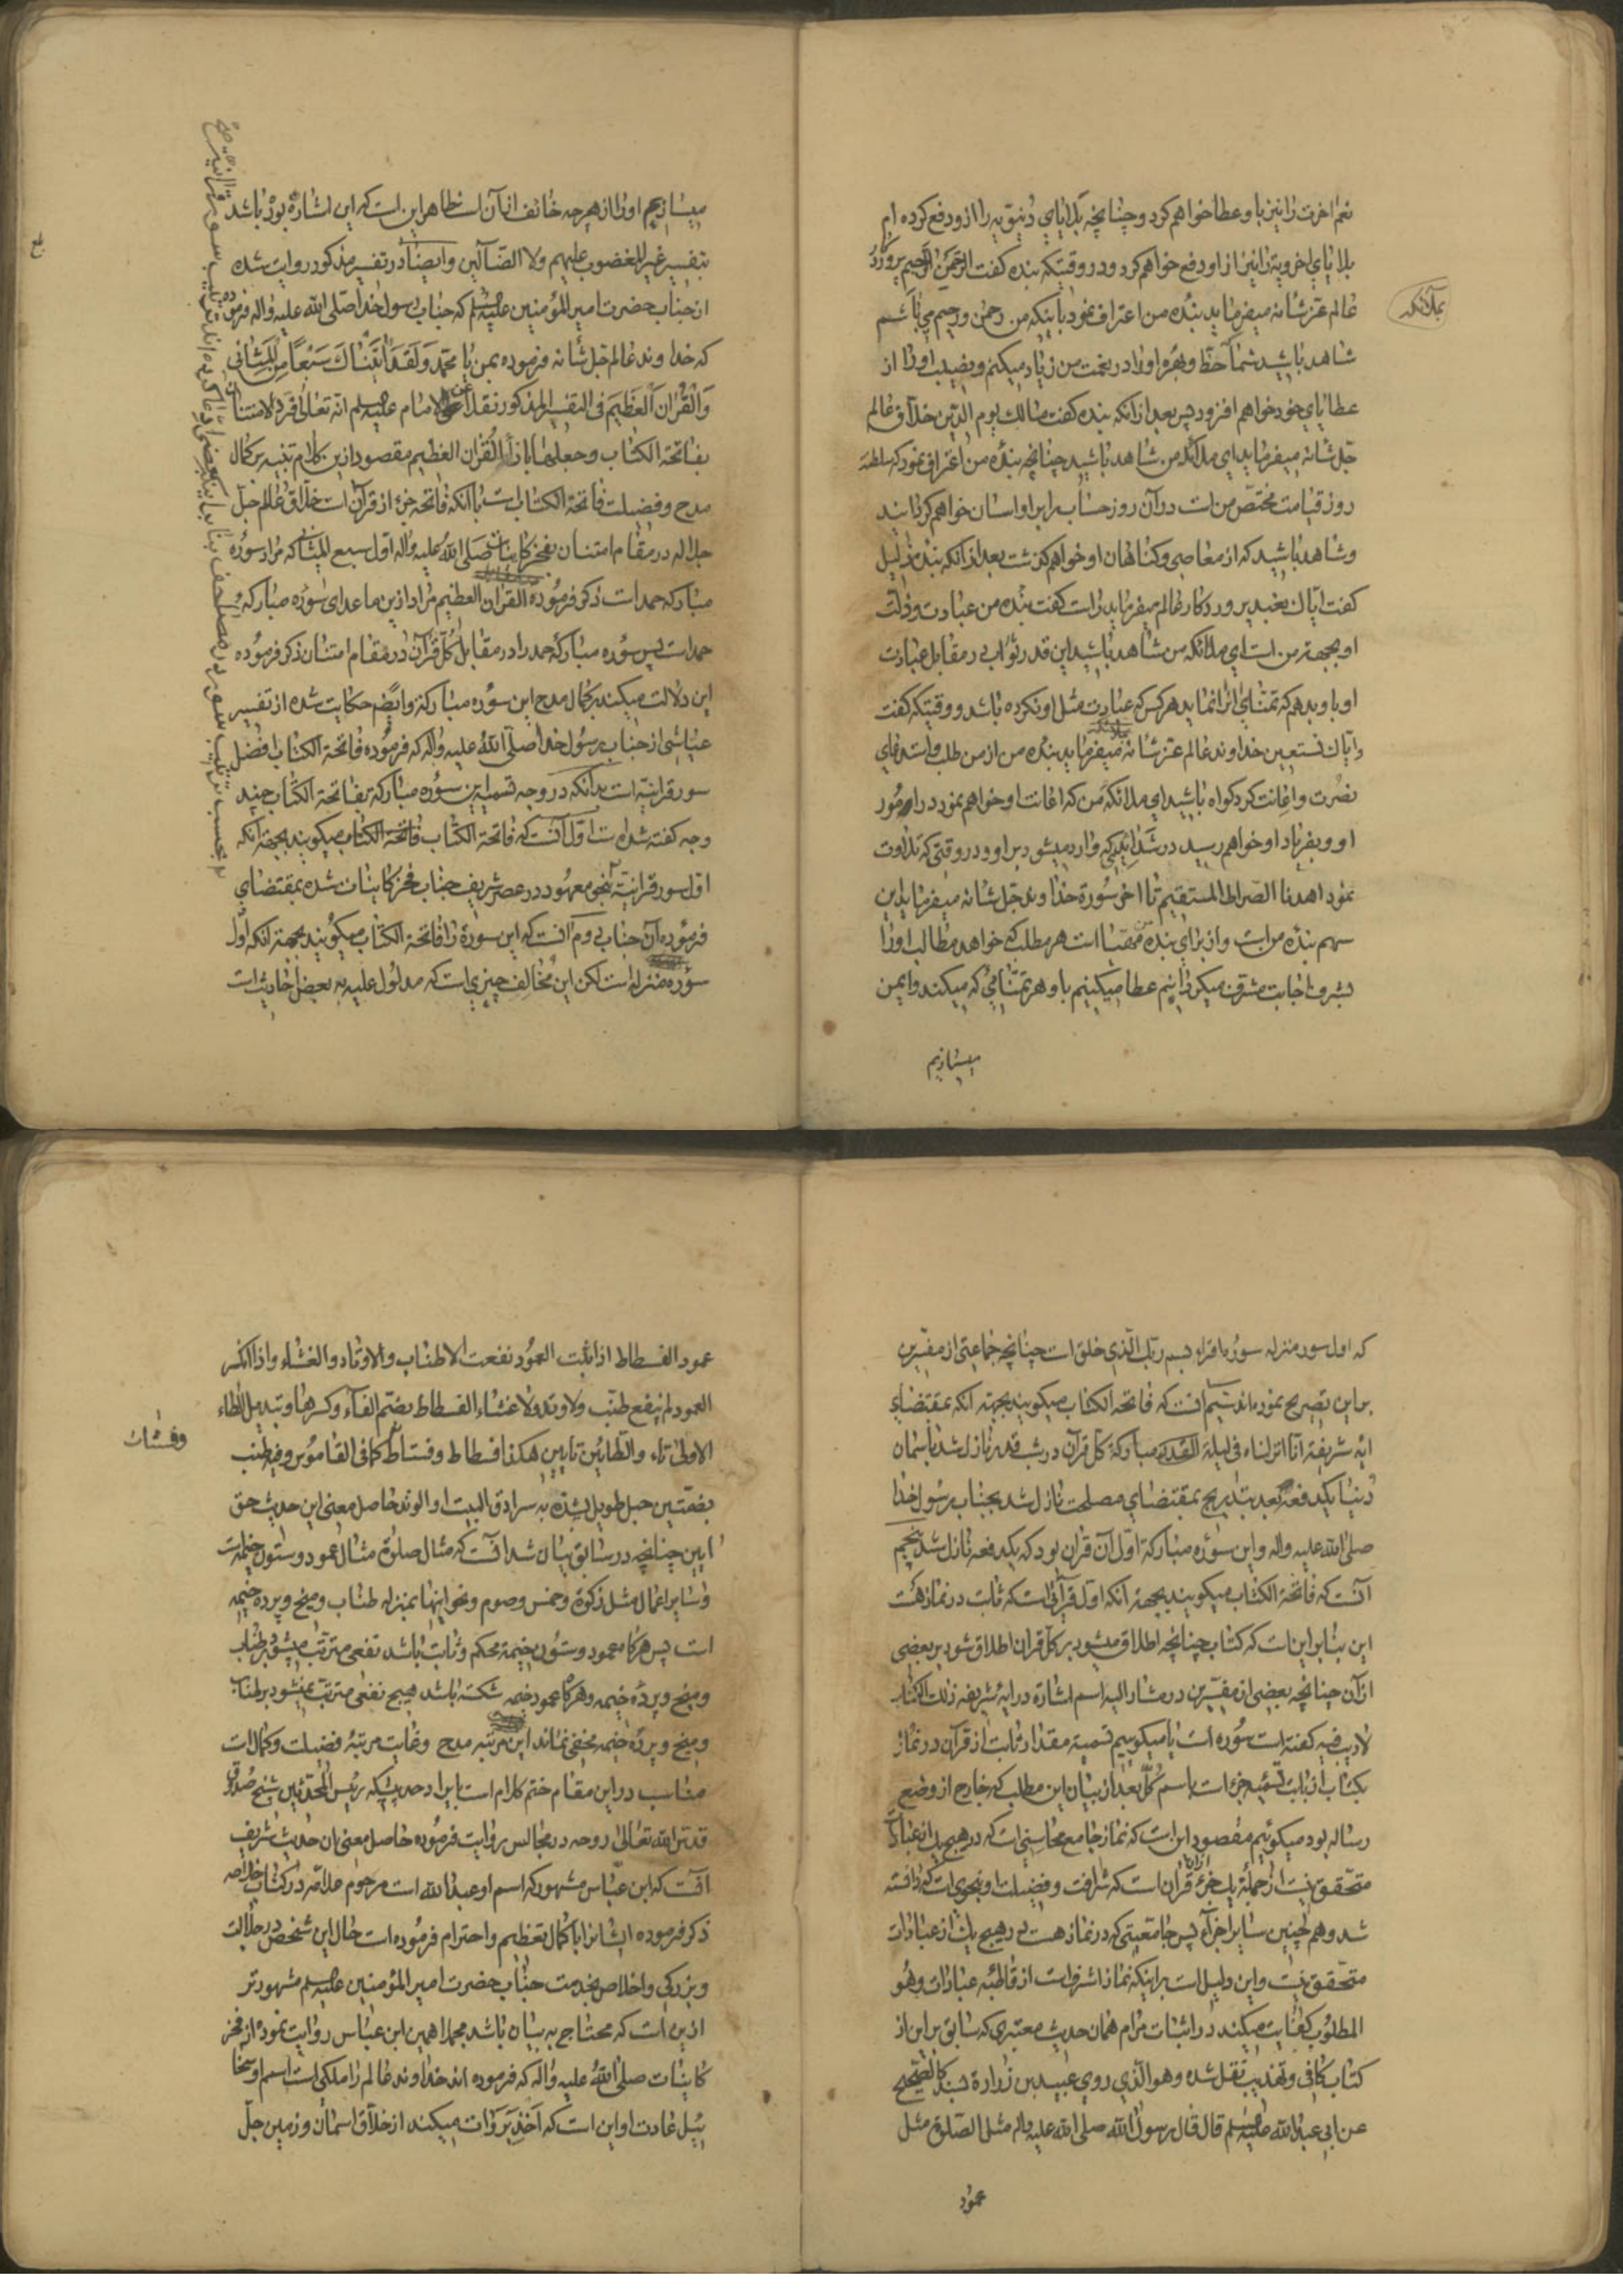 نعم اخرت را نیز باو عطا خواهم کرد و چنانچه بلایای دنیویه را از او دفع کرده ام
بلایای اخرویه را نیز از او دفع خواهم کرد و در وقتیکه بنده کفت الرحمن الرحیم پروردکار
عالم عز شانه میفرماید بنده من اعتراف نمود باینکه من رحمن و رحیم می باشم
بملائکه
شاهد باشید شما حظ و بهره او را در نعمت من زیاد میکنم و نصیب او را از
عطایای خود خواهم افزود پس بعد از انکه بنده کفت مالک یوم الدین خلاق عالم
جل شانه میفرماید ای ملائکه من شاهد باشید چنانچه بنده من اعتراف نمود که سلطنة
روز قیامت مختص من است در آن روز حساب را بر او اسان خواهم کردانید
و شاهد باشید که از معاصی و کناهان او خواهم کذشت بعد از انکه بنده ذلیل
کفت ایاک نعبد پروردکار عالم میفرماید راست کفت بنده من عبادت و ذلت
او بجهة من است ای ملائکه من شاهد باشید این قدر ثواب در مقابل عبادت
او باو بدهم که تمنای انرا نماید هر کس که عبادت مثل او نکرده باشد و وقتیکه کفت
و ایاک نستعین خداوند عالم عز شانه میفرماید بنده من از من طلب و استدعای
نصرت و اغانت کرد کواه باشید ای ملائکه من که اغانت او خواهم نمود در امور
او و بفریاد او خواهم رسید در شدائدیکه وارد میشود بر او و در وقتی که تلاوت
نمود اهدنا الصراط المستقیم تا اخر سورة خداوند جل شانه میفرماید این
سهم بنده من است و از برای بنده من مهیا است هر مطلب که خواهد مطالب او را
بشرف اجابت مشرف میکردانیم عطا میکنیم باو هر تمنائی که میکند و ایمن
میسازیم
میسازیم او را از هر چه خائف از آن است ظاهر این است که این اشاره بوده باشد
بتفسیر غیر المغضوب علیهم ولا الضالین و ایضا در تفسیر مذکور روایت شده
از جناب حضرت امیر المؤمنین علیه السلم که جناب رسول خدا صلی الله علیه واله فرموده
که خداوند عالم جل شانه فرموده بمن یا محمد وَلَقَدْ آتَیْنَاکَ سَبْعًا مِنَ الْمَثَانِي
وَالْقُرْآنَ الْعَظِيمَ فی التفسیر المذکور نقلا عن الامام علیه السلم انه تعالی افرد الامتنان
بفاتحة الکتاب وجعلها بازاء القران العظیم مقصود ازین کلام تنبیه بر کمال
مدح و فضیلت فاتحة الکتاب است با انکه فاتحه جزء از قرآن است خلاق عالم جل
جلاله در مقام امتنان بفخر کاینات صلی الله علیه واله اول سبع المثانی که مراد سوره
مبارکه حمد است ذکر فرموده القران العظیم مراد ازین ما عدای سوره مبارکه
حمد است پس سوره مبارکه حمد را در مقابل کل قرآن در مقام امتنان ذکر فرموده
این دلالت میکند بر کمال مدح این سوره مبارکه و ایضم حکایت شده از تفسیر
عیاشی از جناب رسول خدا صلی الله علیه واله که فرموده فاتحة الکتاب افضل
سور قرانیه است بدانکه در وجه تسمیه این سوره مبارکه بفاتحة الکتاب چند
وجه کفته شده است اول آنست که فاتحة الکتاب فاتحة الکتاب میکویند بجهة انکه
اول سور قرانیه بنحو معهود در عصر شریف جناب فخر کاینات شده بمقتضای
فرموده آن جناب دوم آنست که این سورة را فاتحة الکتاب میکویند بجهة انکه اول
سوره منزله است لکن این مخالف چیزی است که مدلول علیه به بعض احادیث است
که اول سور منزله سوره اقراء بسم ربک الذی خلق است چنانچه جماعتی از مفسرین
بر این تصریح نموده اند سیم آنست که فاتحة الکتاب میکویند بجهة انکه بمقتضای
ایه شریفة انا انزلناه فی لیلة القدر مبارکة کل قرآن در شب قدر نازل شد باسمان
دنیا یکدفعه بعد بتدریج بمقتضای مصلحت نازل شد بجناب رسول خدا
صلی الله علیه واله و این سوره مبارکة اول آن قران بود که یکدفعه نازل شد پنجم
آنست که فاتحة الکتاب میکویند بجهة انکه اول قرآنی است که ثابت در نماز هست
این بنابر این است که کتاب چنانچه اطلاق میشود بر کل قران اطلاق شود بر بعضی
از آن چنانچه بعضی از مفسرین در مشار الیه اسم اشارة در ایه شریفه ذلک الکتاب
لا ریب فیه کفته است سوره است یا میکوییم تسمیة مقدار ثابت از قرآن در نماز
بکتاب از بابت تسمیه جزء است باسم کل بعد از بیان این مطلب که خارج از وضع
رساله بود میکوئیم مقصود این است که نماز جامع محاسنی است که در هیچ یک از عبادات
متحقق نیست از جملة یک جزء ان قران است که شرافت و فضیلت او بنحوی است که دانسته
شد و هم چنین سایر اجزاء پس جامعیتی که در نماز هست در هیچ یک از عبادات
متحقق نیست و این دلیل است بر اینکه نماز اشرف است از قاطبه عبادات و هو
المطلوب کفایت میکند در اثبات مرام همان حدیث معتبری که سابق بر این از
کتاب کافی و تهذیب نقل شده وهو الذی روی عبید بن زرارة بسند کالصحیح
عن ابی عبدالله علیه السلم قال قال رسول الله صلی الله علیه واله مثل الصلوة مثل
عمود
عمود الفسطاط اذا ثبت العمود نفعت الاطناب والاوتاد والغشاء واذا انکسر
العمود لم ینفع طنب ولا وتد ولا غشاء الفسطاط بضم الفاء وکسرها وتبدیل الطاء
الاولی تاء والطائین تایین هکذا فسطاط وفستاط کما فی القاموس وفیه طنب
وفستات
بضمتین حبل طویل یشد به سرادق البیت او الوتد حاصل معنی این حدیث حق
ایین چنانچه در سابق بیان شد انست که مثال صلوة مثال عمود و ستون خیمه است
و سایر اعمال مثل زکوة و خمس و صوم و نحو اینها بمنزله طناب و میخ و پرده خیمه
است پس هرکاه عمود و ستون خیمه محکم و ثابت باشد نفعی مترتب میشود بر طناب
و میخ و پرده خیمه و هرکاه عمود خیمه شکسته باشد هیچ نفعی مترتب نمیشود بر طناب
و میخ و پرده خیمه مخفی نماند این مرتبه مدح و غایت مرتبه فضیلت و کمال است
مناسب در این مقام ختم کلام است بایراد حدیثیکه رئیس المحدثین شیخ صدوق
قدس الله تعالی روحه در مجالس روایت فرموده حاصل معنی ان حدیث شریف
آنست که ابن عباس مشهور که اسم او عبدالله است مرحوم علامه در کتاب خلاصه
ذکر فرموده ایشانرا با کمال تعظیم و احترام فرموده است حال این شخص در جلالت
و بزرکی و اخلاص بخدمت جناب حضرت امیر المؤمنین علیه السلم مشهورتر
ازین است که محتاج به بیان باشد مجملا همین ابن عباس روایت نموده از فخر
کاینات صلی الله علیه واله که فرموده اند خداوند عالم را ملکی است اسم او سخا
ئیل عادت او این است که اخذ بروات میکند از خلاق اسمان و زمین جل